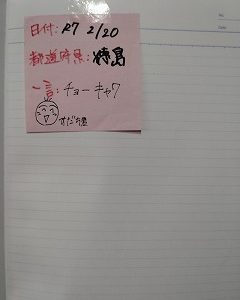 日付: R7 2/20
都道府県: 徳島
一言: チョーキャワ
すだち君